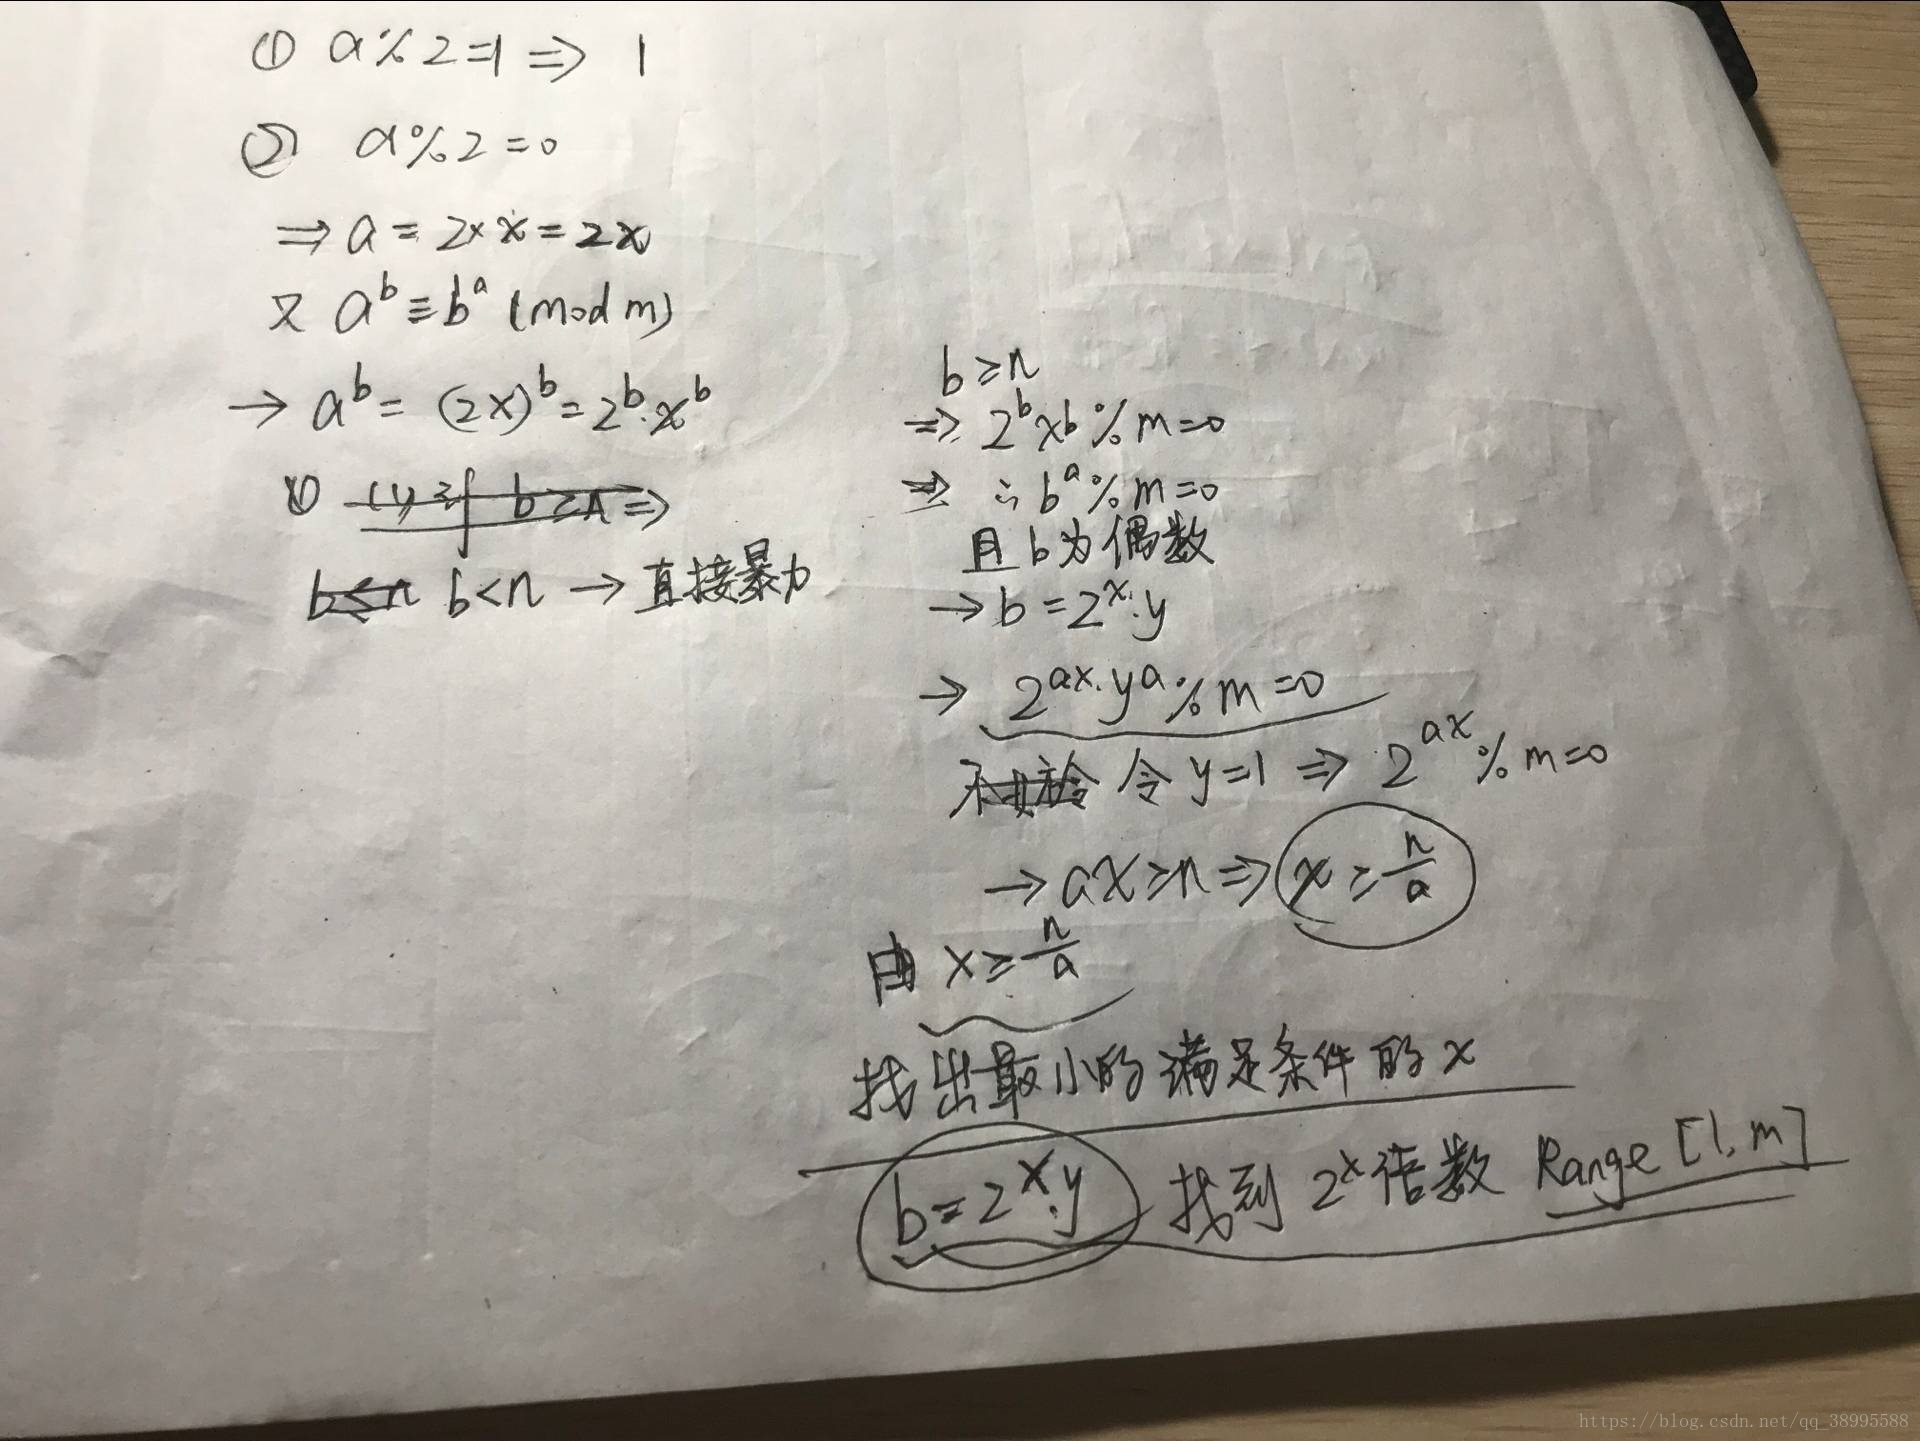 ① a%2=1 ⇒ 1
② a%2=0
⇒ a = 2×x = 2x
又 a^b ≡ b^a (mod m)
→ a^b = (2x)^b = 2^b·x^b
① b≥n ⇒
b≤n b<n → 直接暴力
b≥n
⇒ 2^b x^b % m=0
⇒ ∴ b^a % m=0
且 b为偶数
→ b = 2^x·y
→ 2^ax·y^a % m=0
令 y=1 ⇒ 2^ax % m=0
→ ax≥n ⇒ x≥n/a
由 x≥n/a
找出最小的满足条件的x
b=2^x·y 找到 2^x倍数 Range [1,m]
https://blog.csdn.net/qq_38995588